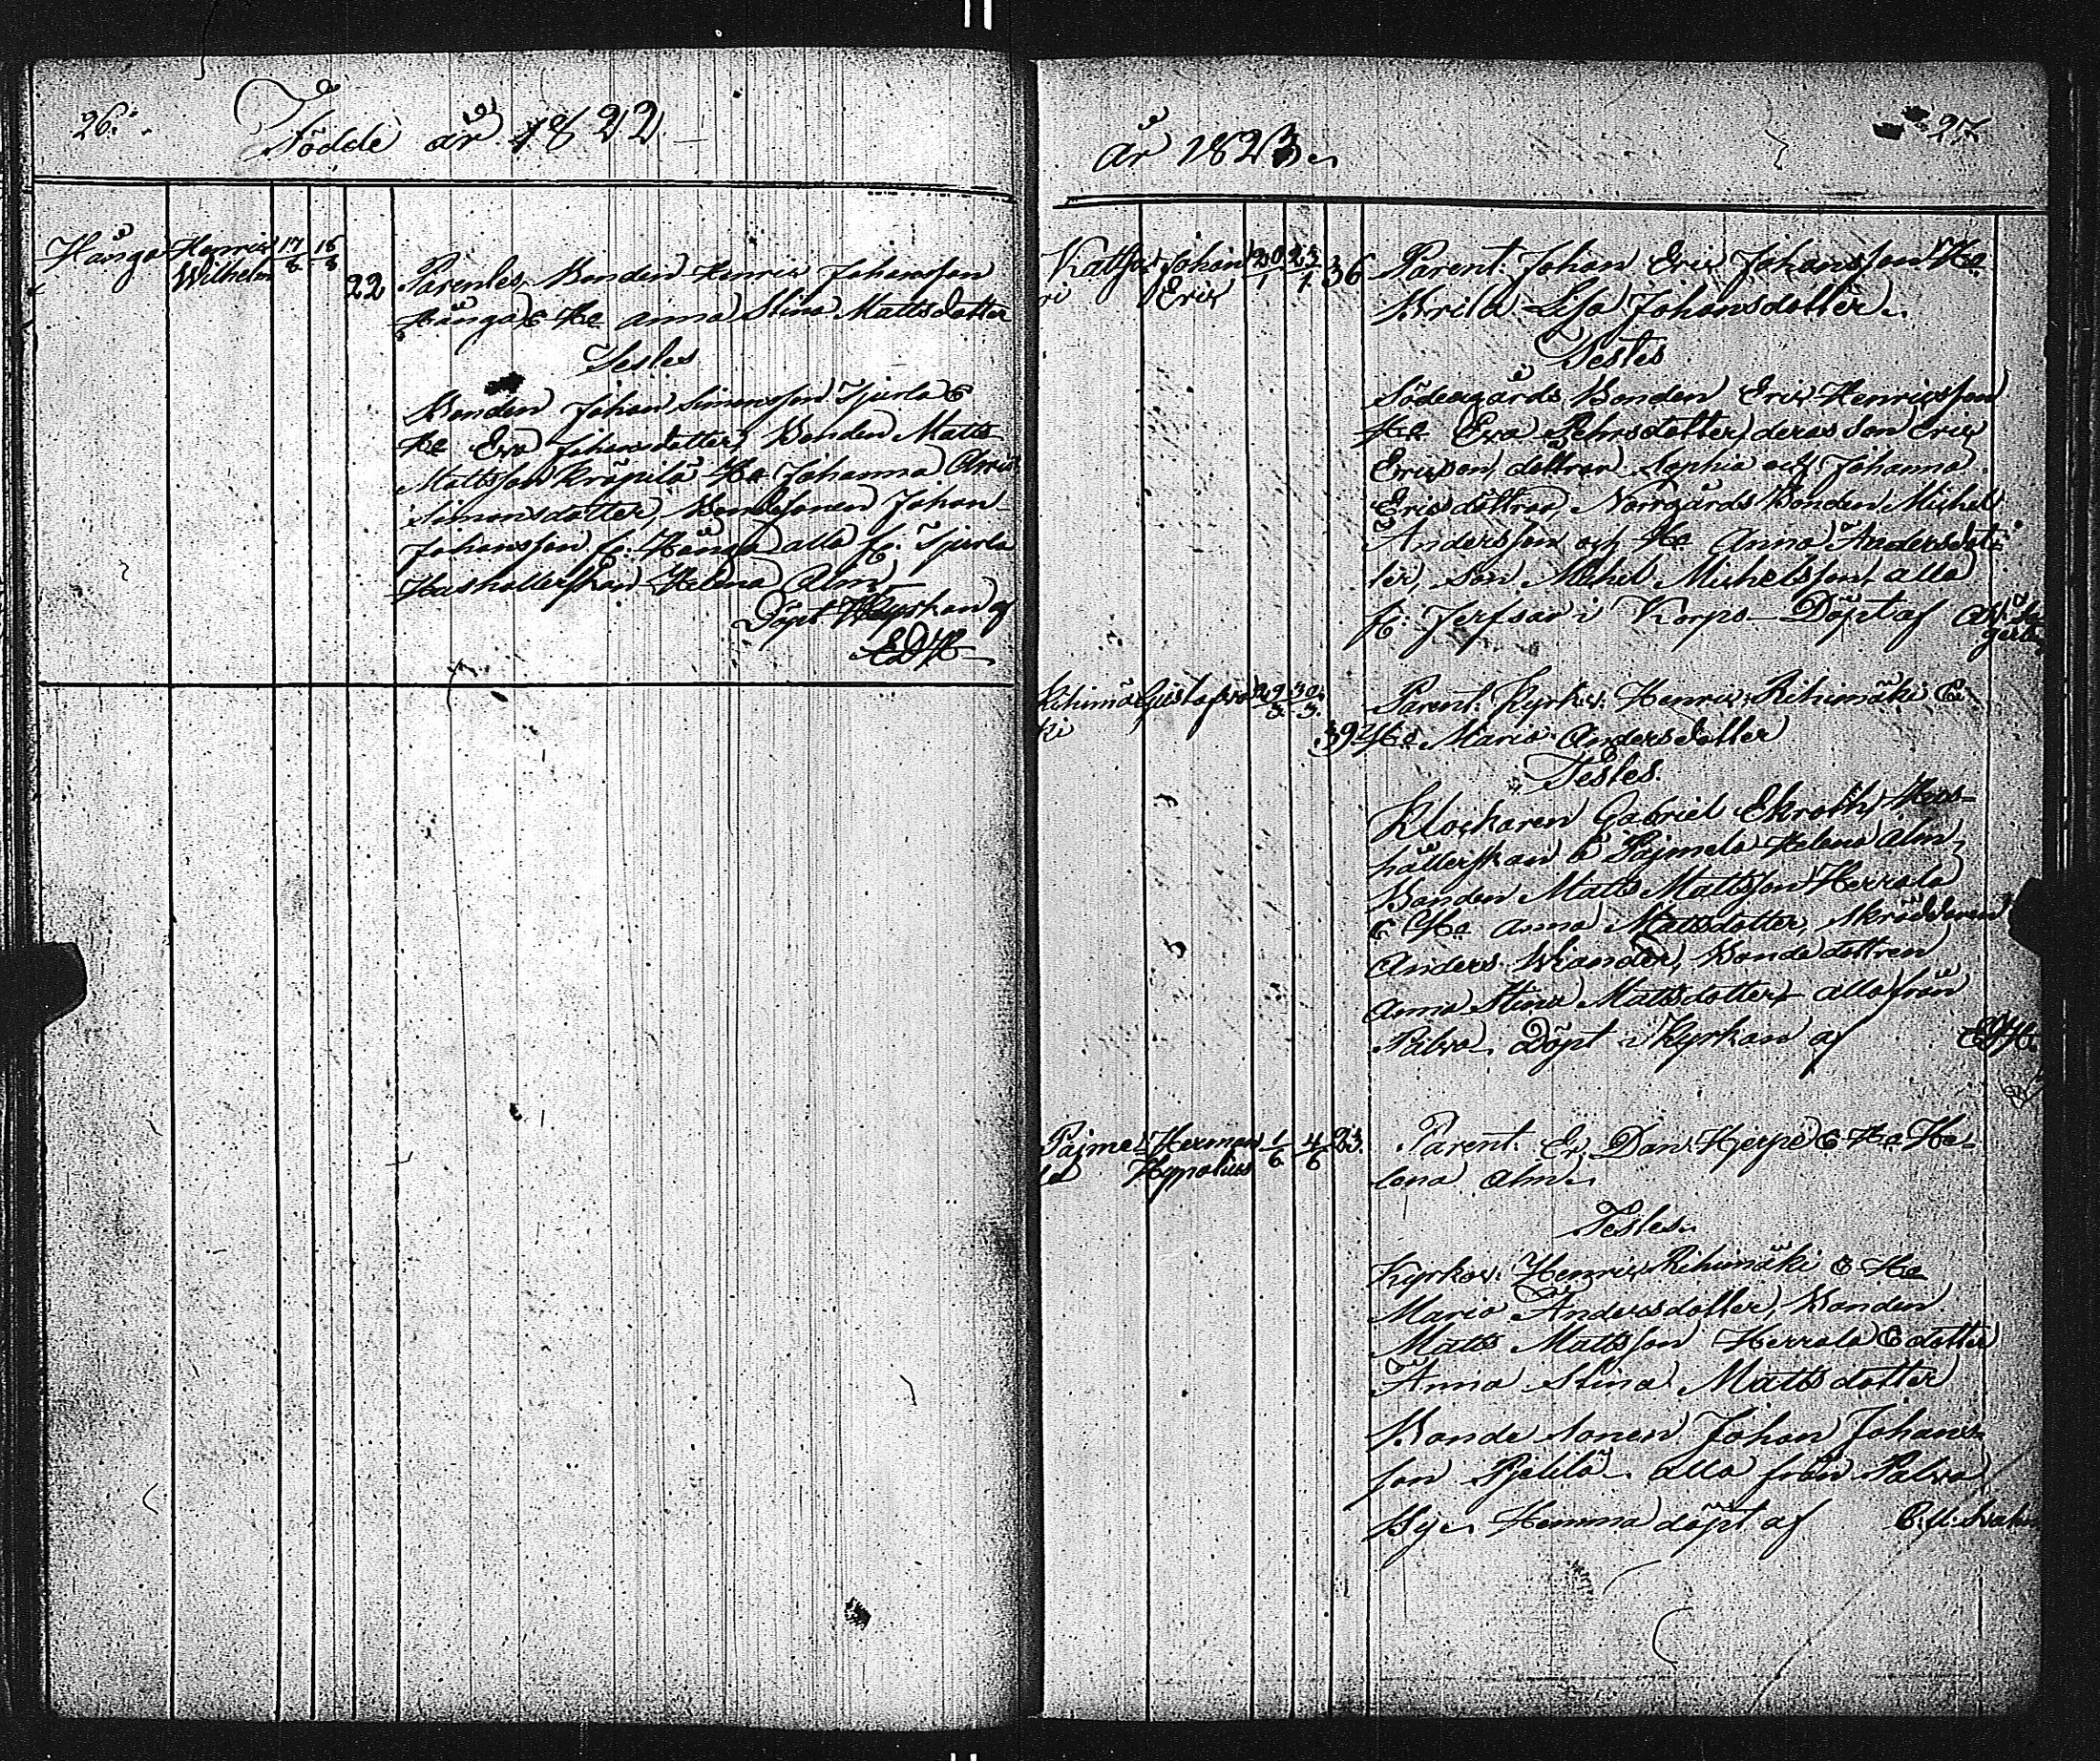 26.
Födde år 1822
Hånga Henric 17/8 18/8
Wilhelm
22 Parentes, Bonden Henric Johansson
Hånga & H:a Anna Stina Mattsdotter
Testes
Bonden Johan Simonsson Tjurla &
H:a Eva Johansdotter, Bonden Matts
Mattsson Kräpilä H:a Johanna
Simonsdotter, Bondesonen Johan
Johansson fr: Hånga alla fr. Tjurla
Hushållerskan Helena Alm
Döpt i Kyrkan af
EDH
27.
år 1823.
Johan 20/1 23/1 36 Parent. Johan Eric Johansson H:a
ri Eric
Brita Lisa Johansdotter.
Testes
Södergårds Bonden Eric Henricsson
H:a Eva Pehrsdotter, deras son Eric
Ericsson, döttrar Sophia och Johanna
Ericsdöttrar Norrgårds Bonden Michel
Andersson och H:a Anna Andersdot-
ter, son Michel Michelsson, alla
fr: Jerfsor i Korpo Döpt af
Rihimä Gustafva 29/3 30/3 Parent. Kyrkov. Henric Rihimäki &
ki 39 H:a Maria Andersdotter
Testes.
Klockaren Gabriel Ekroth, Hus-
hållerskan å Pajmela Helena Alm,
Bonden Matts Mattsson Herrala
& H:a Anna Mattsdotter, Skräddaren
Anders, Bondedottren
Anna Stina Mattsdotter alla från
Palva. Döpt i Kyrkan af EDH.
Pajme- Herman 1/6 4/6 23. Parent. Er. Dan. Herpe & H:a He-
la
lena Alm.
Testes.
Kyrkov. Henric Rihimäki & H:a
Maria Andersdotter, Bonden
Matts Mattsson Herrala & dotter
Anna Stina Mattsdotter
Bonde Sonen Johan Johans-
son Pjelilä. alla från Palva
By. Hemma döpt af